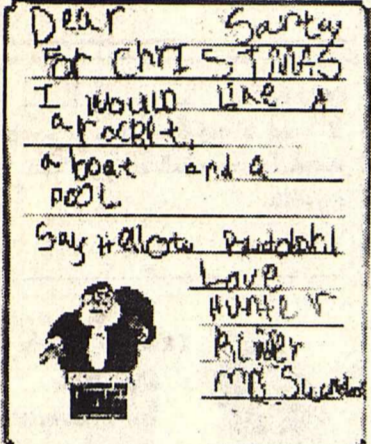 Dear Santa
For ChrISTMAS
I WOULD LIKE A
a rocket,
a boat and a
pool
Say Helloto Rudolahl
Love
HUNTER